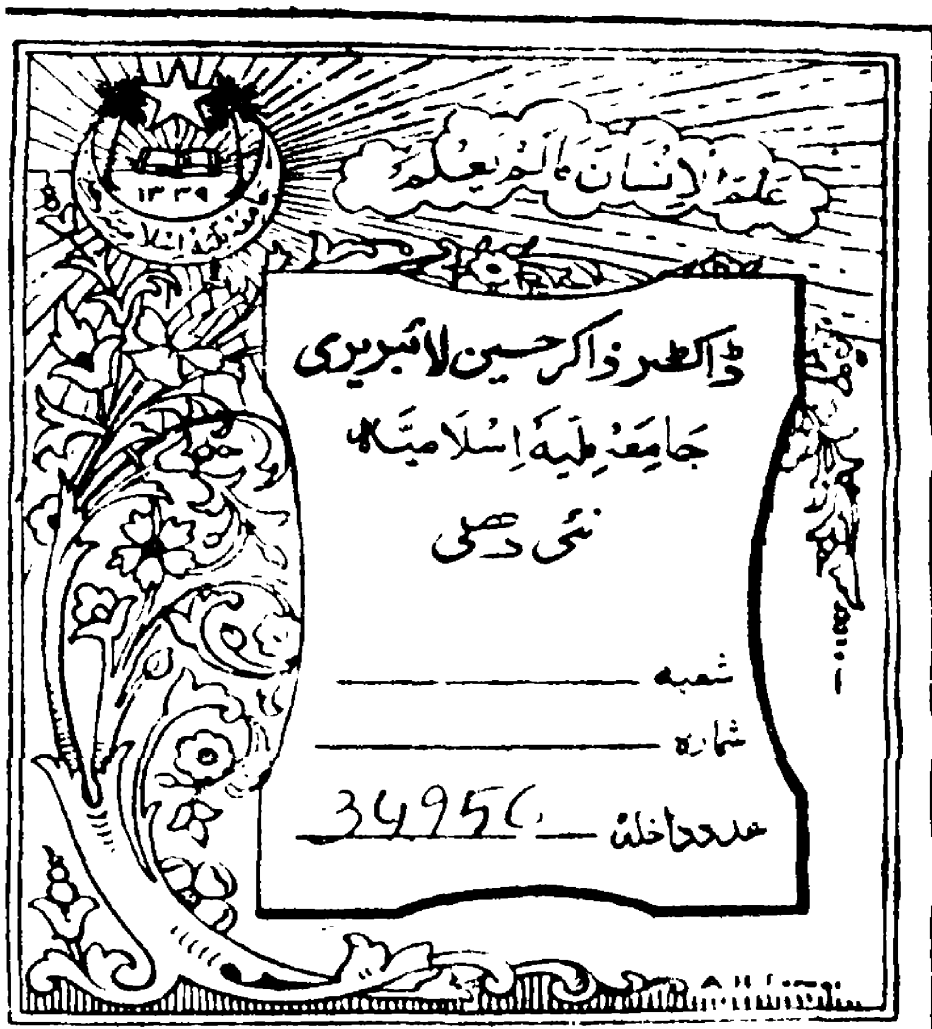 علم الانسان مالم يعلم
۱۳۳۹
جامعہ ملیہ اسلامیہ
ڈاکٹر ذاکر حسین لائبریری
جَامِعَہ مِلّیہ اِسْلَامیَّہ
نئی دھلی
شعبہ
شمارہ
عدد داخلہ 34956